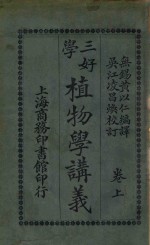 無錫黃以仁編譯
吳江凌昌煥校訂
卷上
三好學
植物學講義
上海商務印書館印行